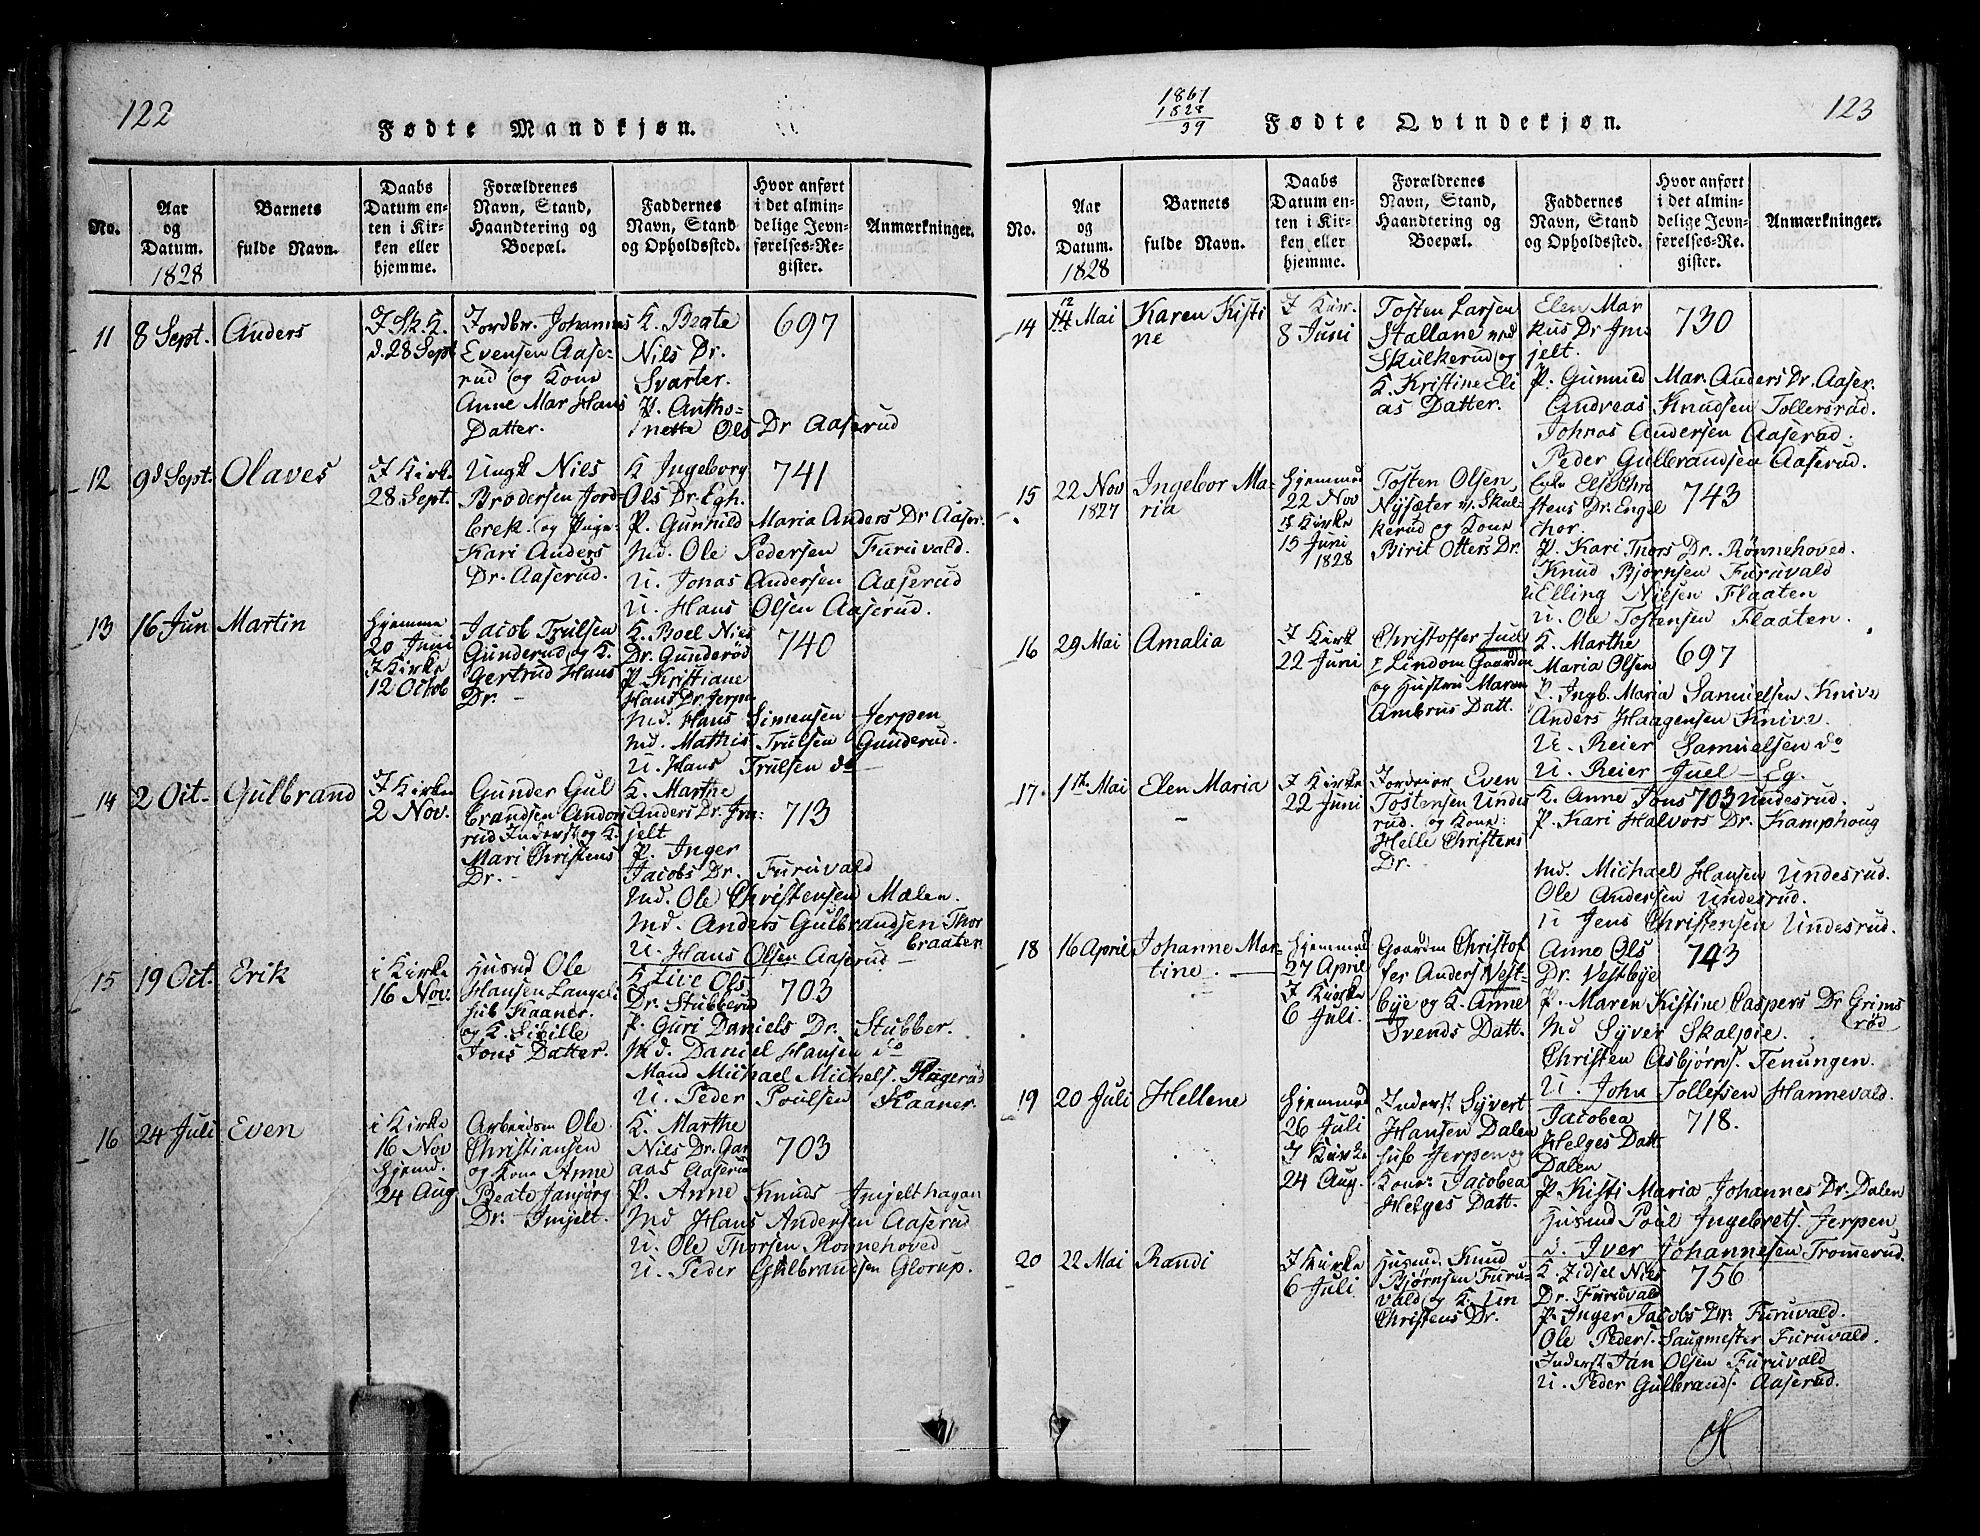 122
Fødte Mandkjøn.
No.
Aar
og
Datum.
1828
Barnets
fulde Navn.
Daabs
Datum en-
ten i Kir-
ken eller
hjemme.
Forældrenes
Navn, Stand,
Haandtering og
Boepæl.
Faddernes
Navn, Stand
og Opholdssted.
Hvor anført
i det almin-
delige Jevn-
førelses-Re-
gister.
Anmærkninger.
11
8 Sept.
Anders
I Sk. K.
d. 28 Sept
Jordbr. Johannes
Evensen Aase-
rud og Kone
Anne Mar Hans
Datter.
K. Beate
Nils Dr.
Svarter.
P. Antho-
nette Ols Dr Aaserud
697
12
9d Sept.
Olaves
I Kirke
28 Sept.
Ungk Niels
Brodersen Jord-
brek. og Pige
Kari Anders
Dr. Aaserud.
K Ingeborg
Ols Dr. Egh.
P. Gunnild Maria Anders Dr Aaser.
Md. Ole Pedersen Furuvald.
U. Jonas Andersen Aaserud
U. Hans Olsen Aaserud.
741
13
16 Jun
Martin
hjemme
20 Juni
I Kirke
12 Octob
Jacob Trulsen
Gunderud og K.
Gertrud Hans
Dr. -
K. Boel Nies
Dr. Gunderød
P Kristiane
Hans Dr. Jerpen
Md. Hans Simensen Jerpen
Md. Mathis Trulsen Gunderud.
U. Hans Trulsen do
740
14
2 Oct.
Gulbrand
I Kirke
2 Nov.
Gunder Gul
brandsen Andor
rud Inderst og K.
Mari Christens
Dr. -
K. Marthe
Anders Dr. Im-
jelt
P. Inger
Jacobs Dr. Furuvald
Md. Ole Christensen Mælen.
Md. Anders Gulbrandsen Thor
braaten
U. Hans Olsen Aaserud
713
15
19 Oct.
Erik
i Kirke
16 Nov.
Husmd Ole
Hansen Langeli
sub Kaaner.
og K. Siville
Jons Datter.
K Live Ols
Dr. Stubberud
P. Guri Daniels Dr. Stubber.
Md. Daniel Hansen do
Mand Michael Michels. Hagerud
U. Peder Poulsen Kaaner.
703
16
24 Juli
Even
i Kirke
16 Nov
hjemd.
24 Aug
Arbeidsm Ole
Christiansen
og Kone Anne
Beate Janjørg
Dr. Imjelt.
K. Marthe
Niels Dr. Gar
aas Aaserud
P. Anne Knuds Imjelthagan
Md Hans Andersen Aaserud
U. Ole Thorsen Ronnehoved
U. Peder Gulbrandsen Glorup.
703
1867
1828
39
Fødte Qvindekjøn.
123
No.
Aar
og
Datum.
1828
Barnets
fulde Navn.
Daabs
Datum en-
ten i Kir-
ken eller
hjemme.
Forældrenes
Navn, Stand,
Haandtering og
Boepæl.
Faddernes
Navn, Stand
og Opholdssted.
Hvor anført
i det almin-
delige Jevn-
førelses-Re-
gister.
Anmærkninger.
14
12
14 Mai
Karen Kisti
ne
I Kir.
8 Juni
Tosten Larsen
Stallane ned
Skulkerud og
K. Kristine Eli
as Datter.
Elen Mar
kus Dr Im
jelt.
P. Gunnild Mar. Anders Dr. Aaser.
Andreas Knudsen Tollersrud.
Johnas Andersen Aaserud.
Peder Gulbrandsen Aaserud.
730
15
22 Nov
1827
Ingebor Ma-
ria
hjemmed
22 Nov
I Kirke
15 Juni
1828
Tosten Olsen
Nysæter n. Skul-
kerud og Kone
Birit Otters Dr.
Enke Else Chri
stens Dr. Engel
chor.
P. Kari Thors Dr. Rønnehoved.
Knud Bjornsen Furuvald
U Elling Nielsen Flaaten
U. Ole Tostensen Flaaten.
743
16
29 Mai
Amalia
I Kirke
22 Juni
Christoffer Juel
Lindom Gaarden
og Hustru Maren
Ambrus Datt.
K. Marthe
Maria Olsen
P. Ingb. Maria Samuelsen Knive
Anders Haagensen Knive.
U. Reier Samuelsen do
U. Reier Juel - Eg.
697
17.
1te Mai
Elen Maria
I Kirke
22 Juni
Jordeier Even
Tostensen Undes
rud. og Kone:
Helle Christens
Dr.
K. Anne Jons 703 Undesrud.
P. Kari Halvors Dr. Kamphoug
Md. Michael Hansen Undesrud.
Ole Andersen Undesrud.
U Jens Christensen Undesrud.
18
16 April
Johanne Mar-
tine.
hjemmed
27 April
I Kirke
6 Juli.
Gaardm Christof
fer Anders Vest-
bye og K. Anne
Svends Datt.
Anne Ols
Dr. Vestbye
P. Maren Kistine Caspers Dr Grims
rød
Md Syver Skalpie.
Christen Asbjørns. Tenungen.
U. John Tollefsen Hannevald.
743
19
20 Juli
Hellene
hjemmed
26 Juli
I Kirke
24 Aug.
Inderst. Syvert
Hansen Dalen
sub Jerpen og
Kone: Jacobea
Helges Datt.
Jacobea
Helges Datt
Dalen
P. Kisti Maria Johannes Dr. Dalen
Husmd Poul Ingebrets. Jerpen
d. Iver Johannesen Tromerud.
718.
20
22 Mai
Randi
I Kirke
6 Juli
Husmd. Knud
Bjørnsen Furu-
vald og K. Siri
Christens Dr.
K. Zidsel Nies
Dr. Furuvald
P. Inger Jacobs Dr. Furuvald.
Ole Peders. Saugmester Furuvald.
Inderst Jan Olsen Furuvald
U. Peder Gulbrands. Aaserud.
756